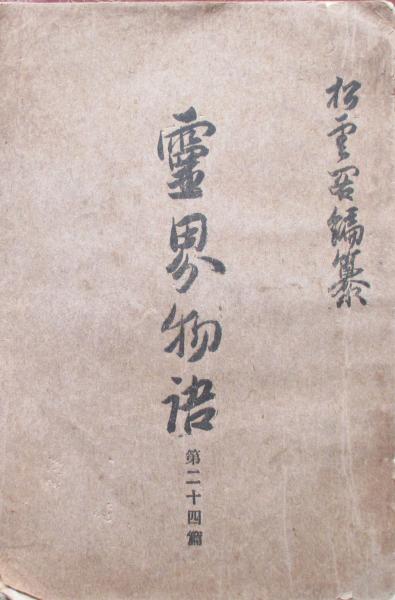 松雲閣編纂
靈界物語
第二十四篇